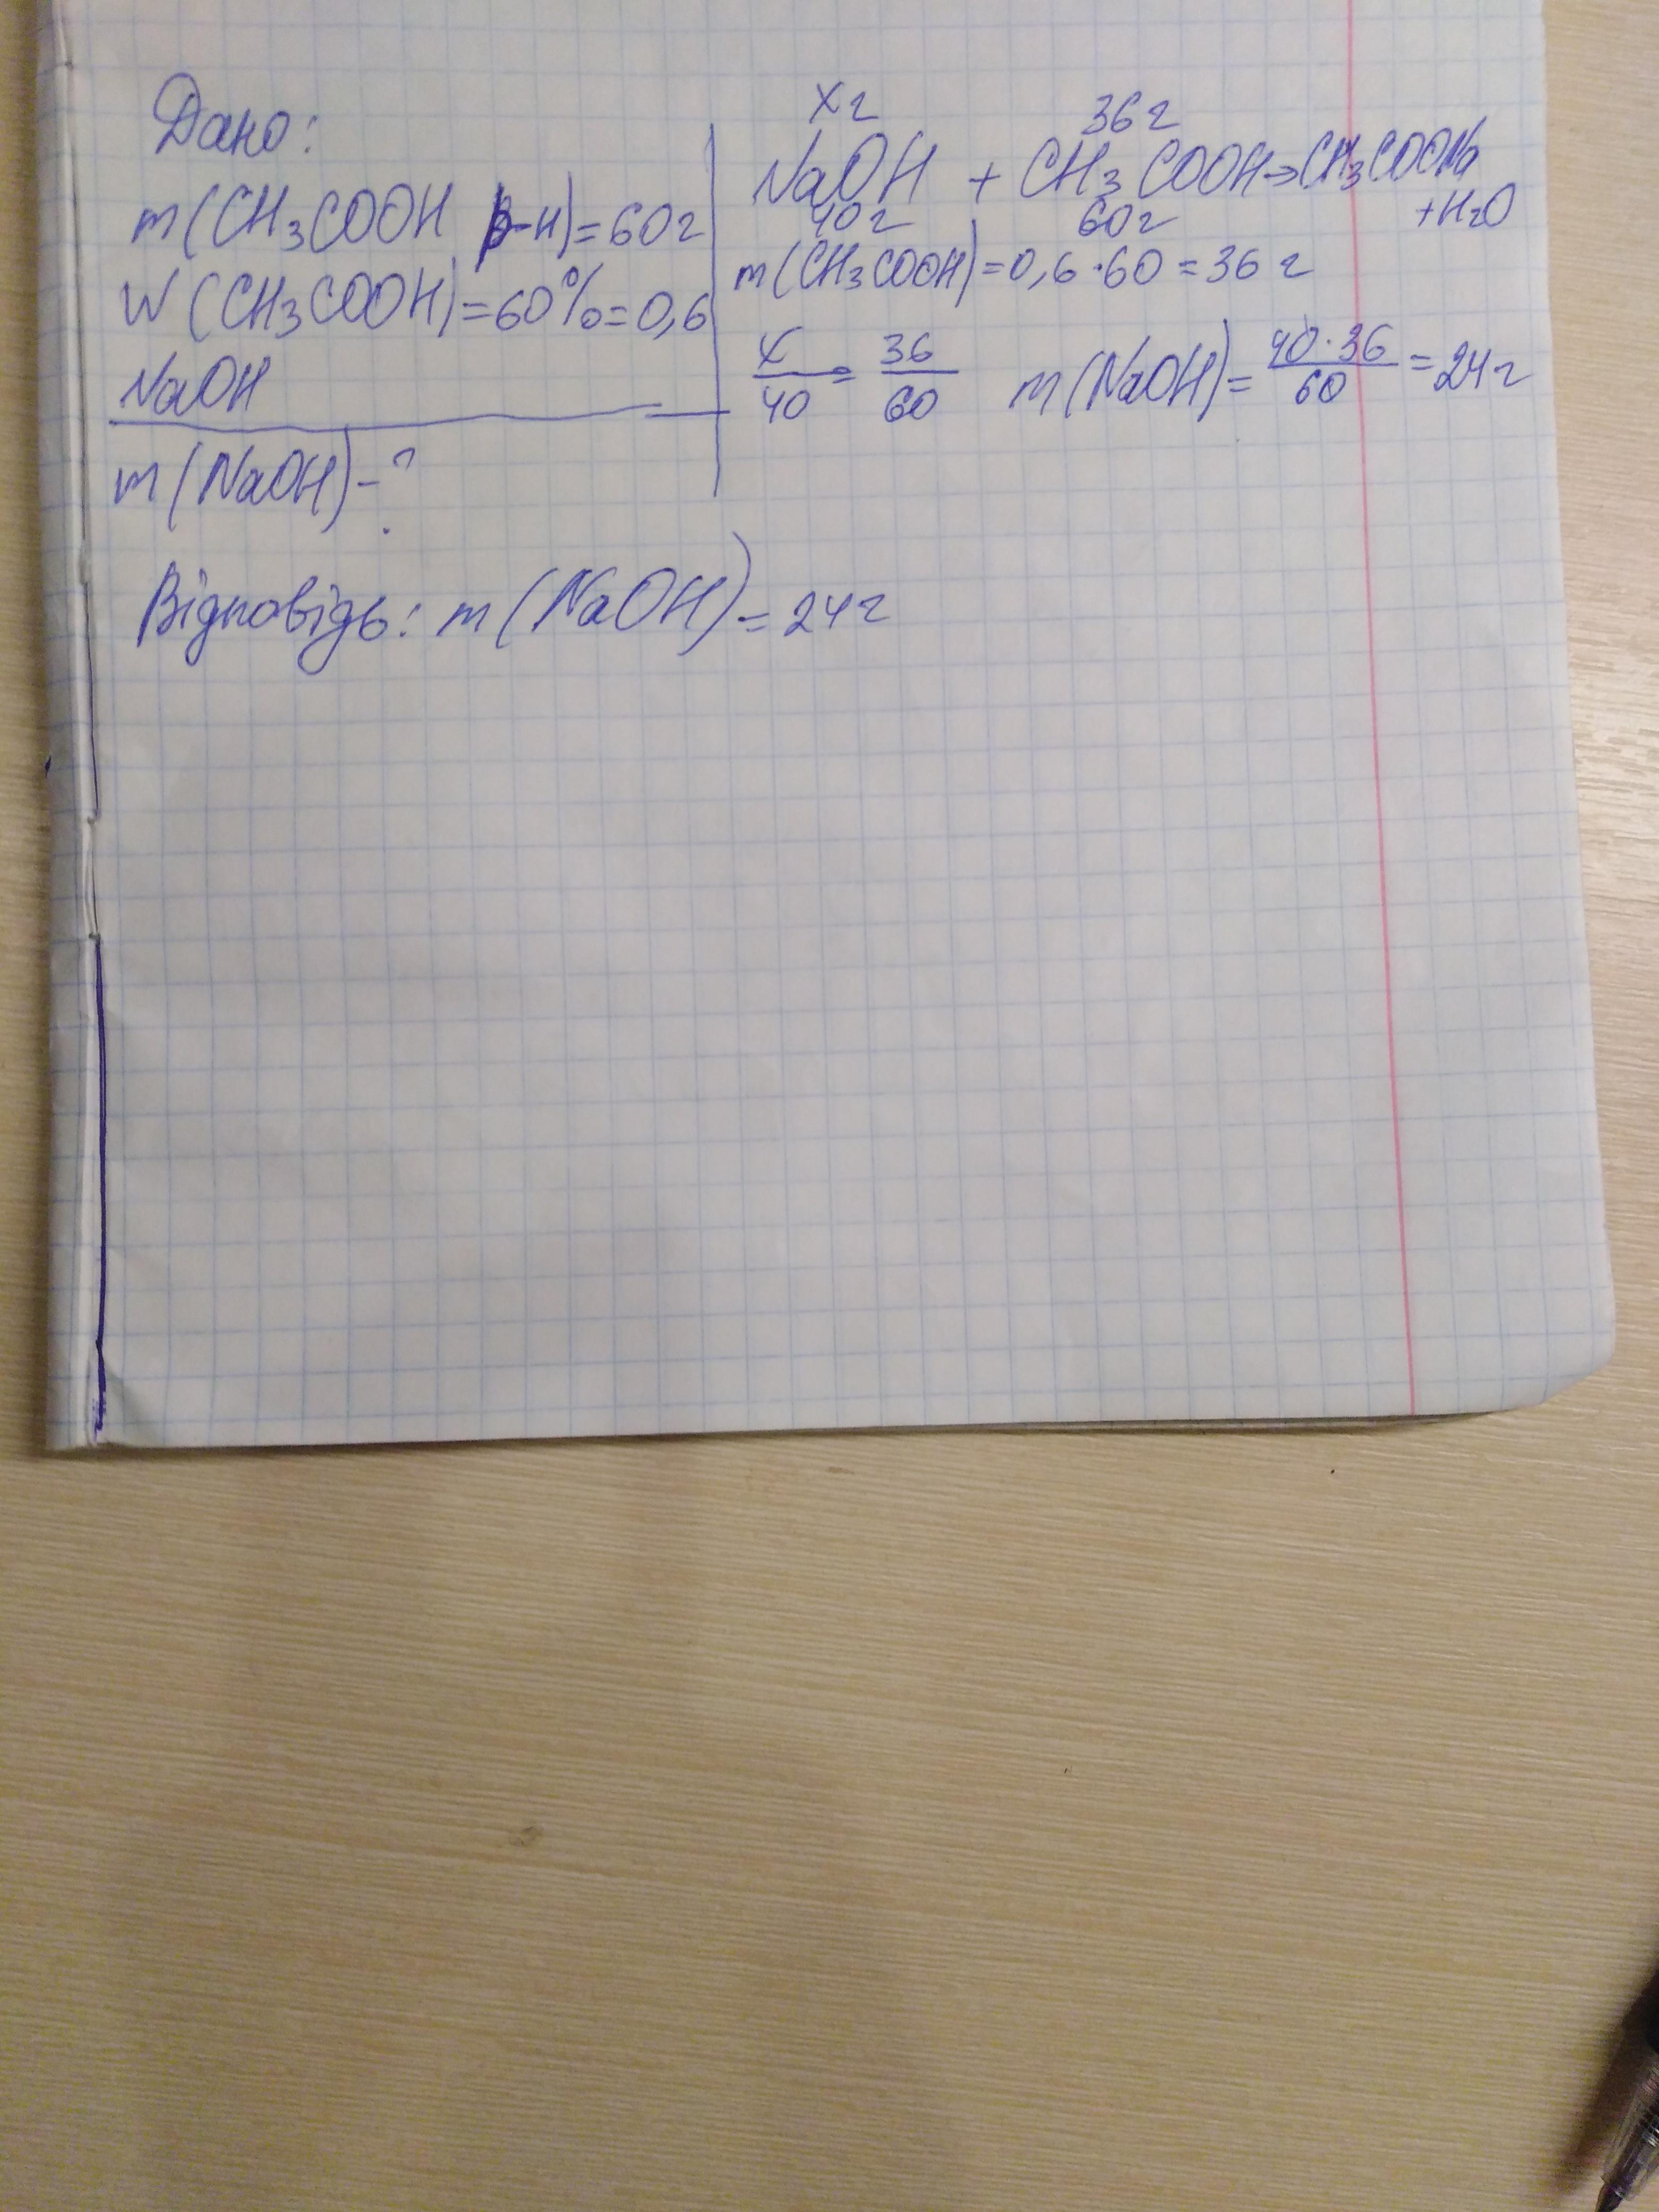 Дано:
m(CH₃COOH р-н)=60г
W(CH₃COOH)=60%=0,6
NaOH
m(NaOH)-?
xг 36г
NaOH + CH₃COOH→CH₃COONa
40г 60г +H₂O
m(CH₃COOH)=0,6·60=36г
x/40 = 36/60 m(NaOH)= 40·36/60 =24г
Відповідь: m(NaOH)=24г